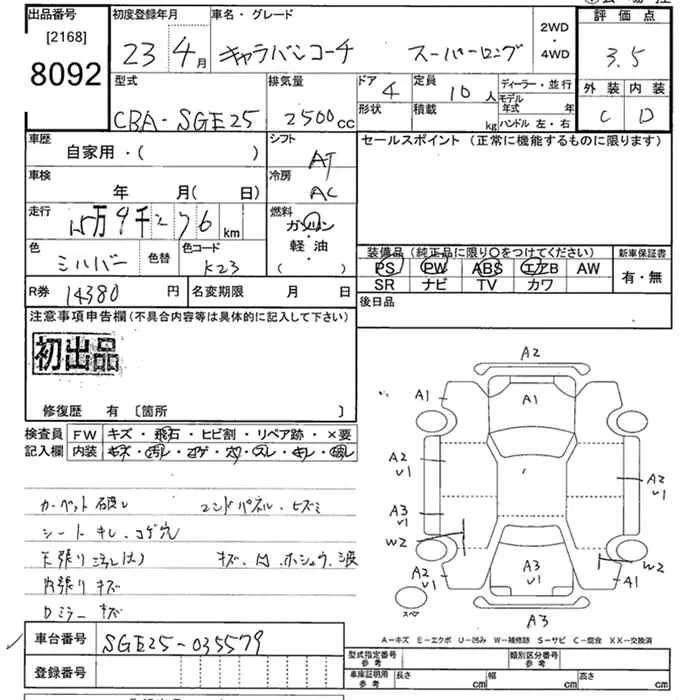 出品番号
[2168]
8092
初度登録年月
23年4月
車名・グレード
キャラバンコーチ スーパーロング
2WD
・
4WD
評価点
3.5
外装 内装
C D
型式
CBA-SGE25
排気量
2500cc
ドア 4
定員 10人
形状
積載 kg
ディーラー・並行
モデル年式 年
ハンドル 左・右
車歴
自家用・( )
シフト
AT
車検
年 月( 日)
冷房
AC
走行
km
燃料
ガソリン
・
軽油
( )
色
シルバー
色替
色コード
K23
セールスポイント (正常に機能するものに限ります)
装備品 (純正品に限り〇をつけてください)
PS PW ABS エアB AW
SR ナビ TV カワ
新車保証書
有・無
R券 14380円
名変期限 月 日
後日品
注意事項申告欄(不具合内容等は具体的に記入して下さい)
初出品
修復歴 有 〔箇所 〕
検査員 FW キズ・飛石・ヒビ割・リペア跡・×要
記入欄 内装 キズ・汚レ・コゲ・穴・スレ・キレ・破レ
カーペット破レ
エンドパネル・ヒズミ
シートキレ・コゲ穴
天張り汚レ(大)
キズ、凹、ホシュウ、波
内張りキズ
Dミラーキズ
A2
A1
A1
A2
V1
A3
V1
W2
A2
V1
A2
V1
W2
A1
A3
V1
A3
スペア
A-キズ E-エクボ U-凹み W-補修跡 S-サビ C-腐食 XX-交換済
車台番号 SGE25-035579
登録番号
型式指定番号
参考
類別区分番号
参考
車庫証明用
参考
長さ cm
幅 cm
高さ cm